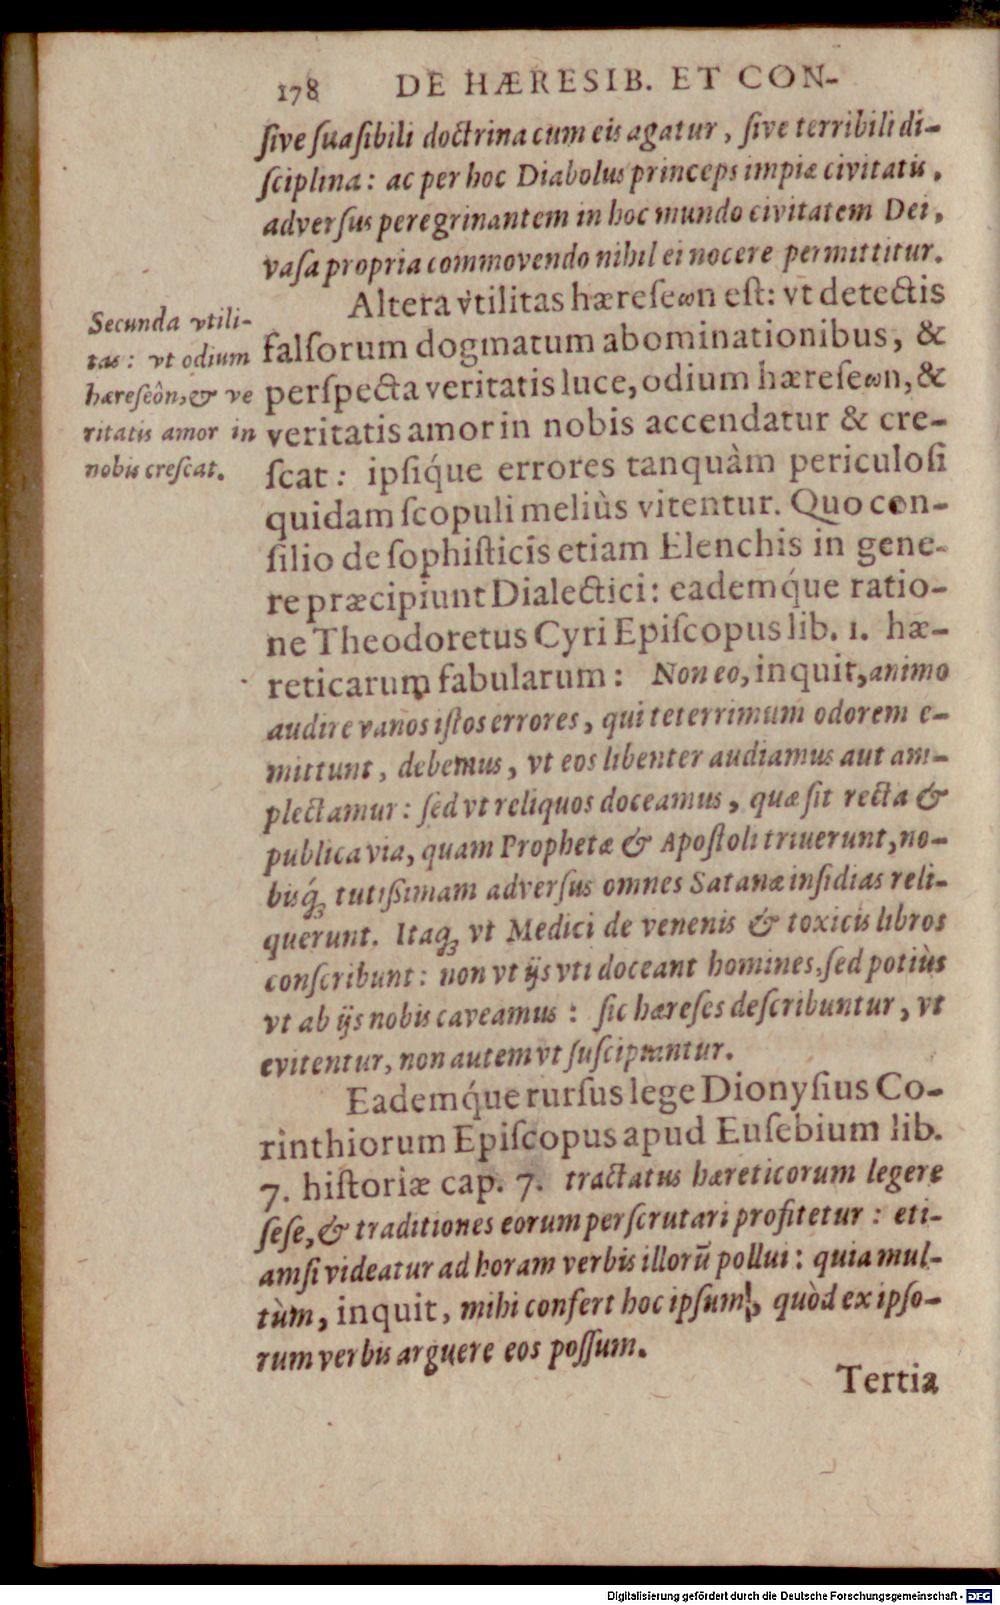 178 DE HÆRESIB. ET CON-
ſive ſuaſibili doctrina cum eis agatur, ſive terribili di-
ſciplina: ac per hoc Diabolus princeps impiæ civitatis,
adverſus peregrinantem in hoc mundo civitatem Dei,
vaſa propria commovendo nihil ei nocere permittitur.
Altera vtilitas hæreſeωn eſt: vt detectis
falſorum dogmatum abominationibus, &
perſpecta veritatis luce, odium hæreſeωn, &
veritatis amor in nobis accendatur & cre-
ſcat: ipſiq́ue errores tanquàm periculoſi
quidam ſcopuli meliùs vitentur. Quo con-
ſilio de ſophiſticis etiam Elenchis in gene-
re præcipiunt Dialectici: eademq́ue ratio-
ne Theodoretus Cyri Epiſcopus lib. 1. hæ-
reticarum fabularum: Non eo, inquit, animo
audire vanos iſtos errores, qui teterrimum odorem e-
mittunt, debemus, vt eos libenter audiamus aut am-
plectamur: ſed vt reliquos doceamus, quæ ſit recta &
publica via, quam Prophetæ & Apoſtoli triverunt, no-
bisq́ꝫ tutiſsimam adverſus omnes Satanæ inſidias reli-
querunt. Itaqꝫ vt Medici de venenis & toxicis libros
conſcribunt: non vt ijs vti doceant homines, ſed potiùs
vt ab ijs nobis caveamus: ſic hæreſes deſcribuntur, vt
evitentur, non autem vt ſuſcipiantur.
Eademq́ue rurſus lege Dionyſius Co-
rinthiorum Epiſcopus apud Euſebium lib.
7. hiſtoriæ cap. 7. tractatus hæreticorum legere
ſeſe, & traditiones eorum perſcrutari profitetur: eti-
amſi videatur ad horam verbis illorũ pollui: quia mul-
tùm, inquit, mihi confert hoc ipſum, quòd ex ipſo-
rum verbis arguere eos poſſum.
Tertia
Secunda vtili-
tas: vt odium
hæreſeôn, & ve
ritatis amor in
nobis creſcat.
Digitalisierung gefördert durch die Deutsche Forschungsgemeinschaft - DFG